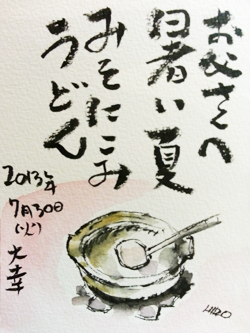 お父さんへ
暑い夏
みそにこみ
うどん
2013年
7月30日
(火)
大幸
HIRO